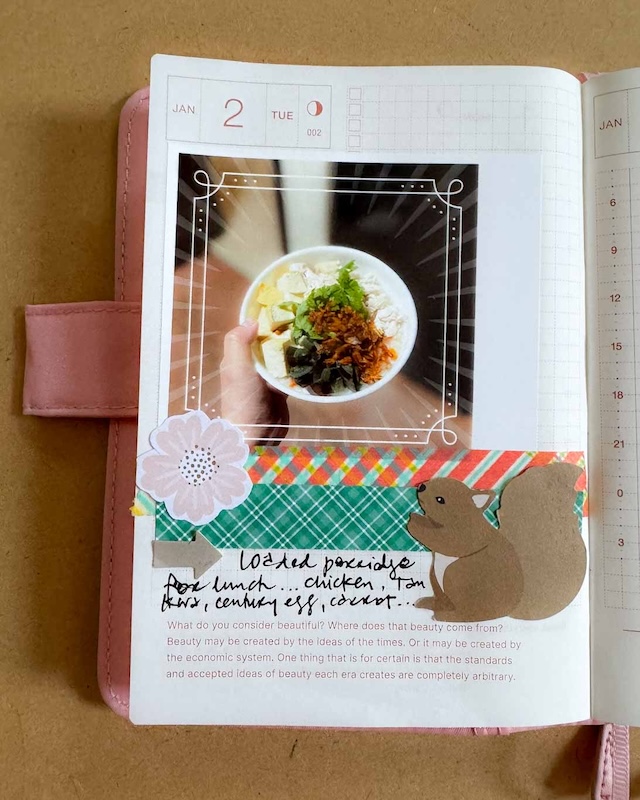 JAN 2 TUE
002
JAN
6
9
12
15
18
21
0
3
Loaded porridge
for lunch... chicken, Tan
century egg, carrot...
What do you consider beautiful? Where does that beauty come from?
Beauty may be created by the ideas of the times. Or it may be created by
the economic system. One thing that is for certain is that the standards
and accepted ideas of beauty each era creates are completely arbitrary.